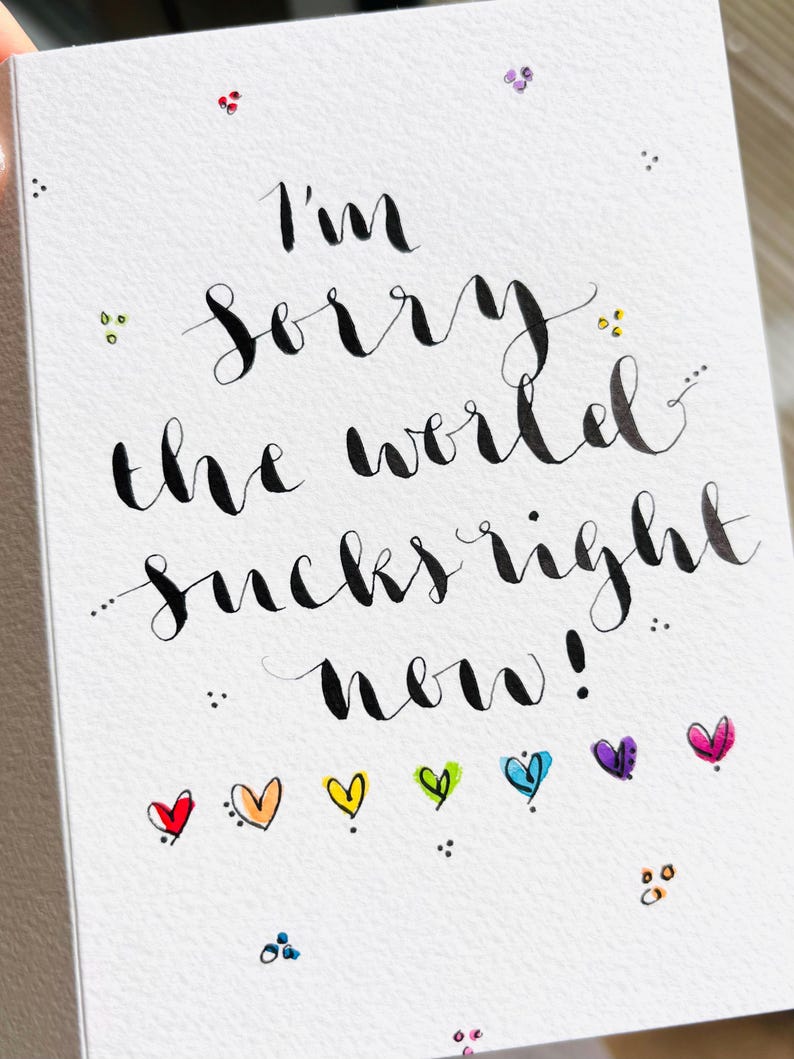 I'm
sorry
the world
sucks right
now!